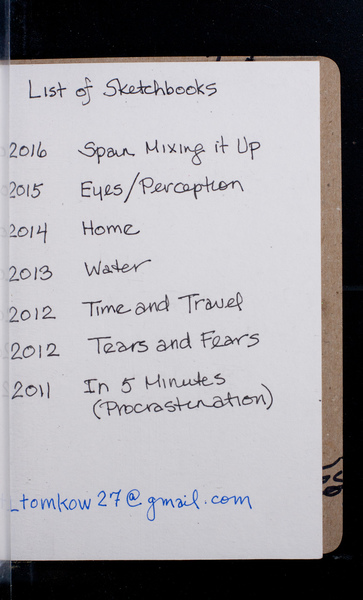 List of Sketchbooks
2016 Span Mixing it Up
2015 Eyes/Perception
2014 Home
2013 Water
2012 Time and Travel
2012 Tears and Fears
2011 In 5 Minutes
(Procrastenation)
_tomkow27@gmail.com